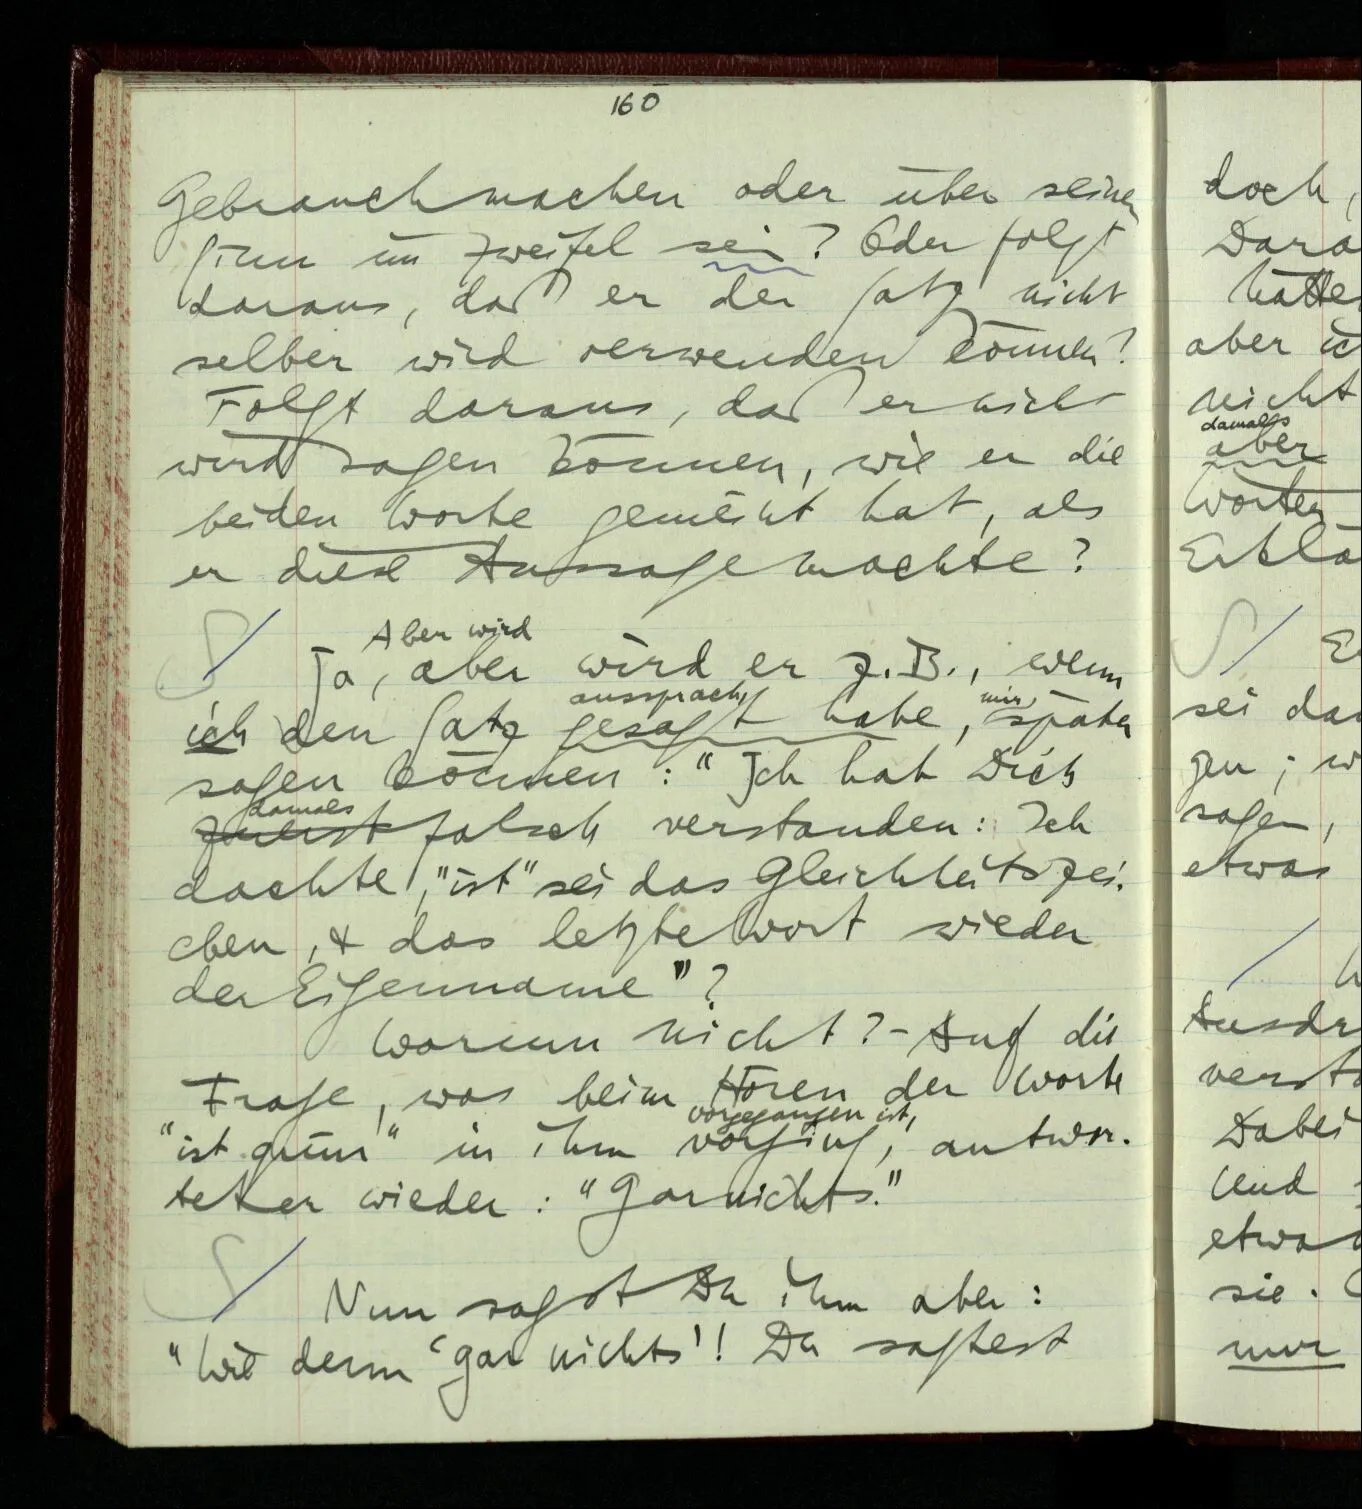 160
Gebrauch machen oder über seinen
Sinn im Zweifel sein? Oder folgt
daraus, daß er den Satz nicht
selber wird verwenden können?
Folgt daraus, daß er nicht
wird sagen können, wie er die
beiden Worte gemeint hat, als
er diese Aussage machte?
S / Aber wird
Ja, aber wird er z.B., wenn
aussprach, mir
ich den Satz gesagt habe, später
sagen können: "Ich hab Dich
damals
zuerst falsch verstanden: Ich
dachte, "ist" sei das Gleichheitszei-
chen, & das letzte Wort wieder
der Eigenname"?
Warum nicht? – Auf die
Frage, was beim Hören der Worte
vorgegangen ist,
"ist grün" in ihm vorging, antwor-
tet er wieder: "Gar nichts."
S /
Nun sagst Du ihm aber:
"Wie denn 'gar nichts'! Du sagtest
doch,
hätte
nicht
damals
aber
Worten
S /
sei
sagen,
etwas
/
Dabei
Und
sie.
nur